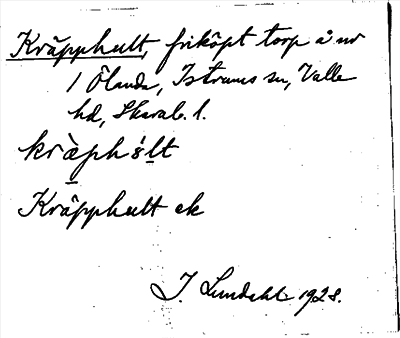 Kräpphult, friköpt torp å nr
1 Ölanda, Istrums sn, Valle
hd, Skarab. l.
kræ̀phúlt
Kräpphult ek
I. Lundahl 1928.